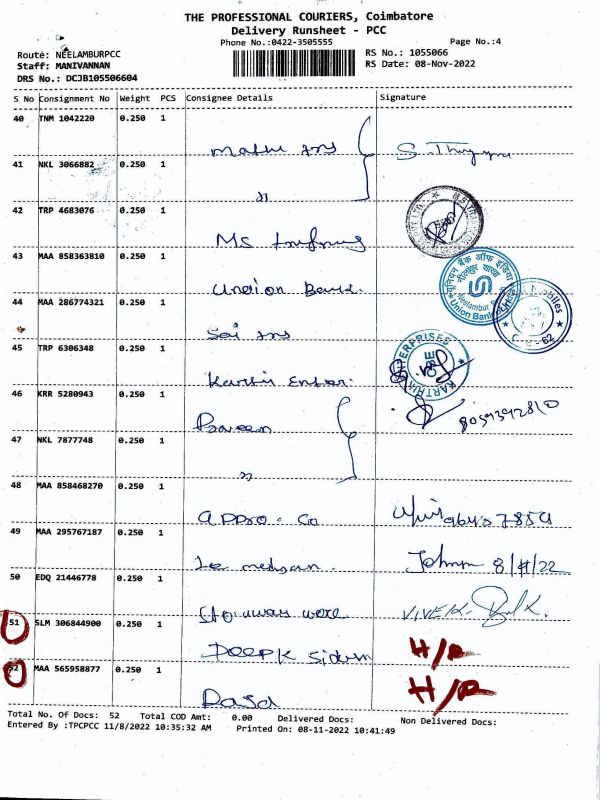 THE PROFESSIONAL COURIERS, Coimbatore
Delivery Runsheet - PCC
Phone No.:0422-3505555
Page No.:4
Route: NEELAMBURPCC
RS No.: 1055066
Staff: MANIVANNAN
RS Date: 08-Nov-2022
DRS No.: DCJB105506604
S No Consignment No Weight PCS Consignee Details Signature
40 TNM 1042220 0.250 1
41 NKL 3066882 0.250 1
42 TRP 4683076 0.250 1
Ms
43 MAA 858363810 0.250 1
Union Bank
यूनियन बैंक ऑफ इंडिया
Neelambur
Union Bank
44 MAA 286774321 0.250 1
Sai
45 TRP 6306348 0.250 1
ENTERPRISES
KARTHIK
46 KRR 5280943 0.250 1
Praveen
8059392810
47 NKL 7877748 0.250 1
48 MAA 858468270 0.250 1
Appro. Co
49 MAA 295767187 0.250 1
50 EDQ 21446778 0.250 1
VIVEK.
51 SLM 306844900 0.250 1
DEEPK
H/R
52 MAA 565958877 0.250 1
Dasa
H/R
Total No. Of Docs: 52 Total COD Amt: 0.00 Delivered Docs: Non Delivered Docs:
Entered By :TPCPCC 11/8/2022 10:35:32 AM Printed On: 08-11-2022 10:41:49